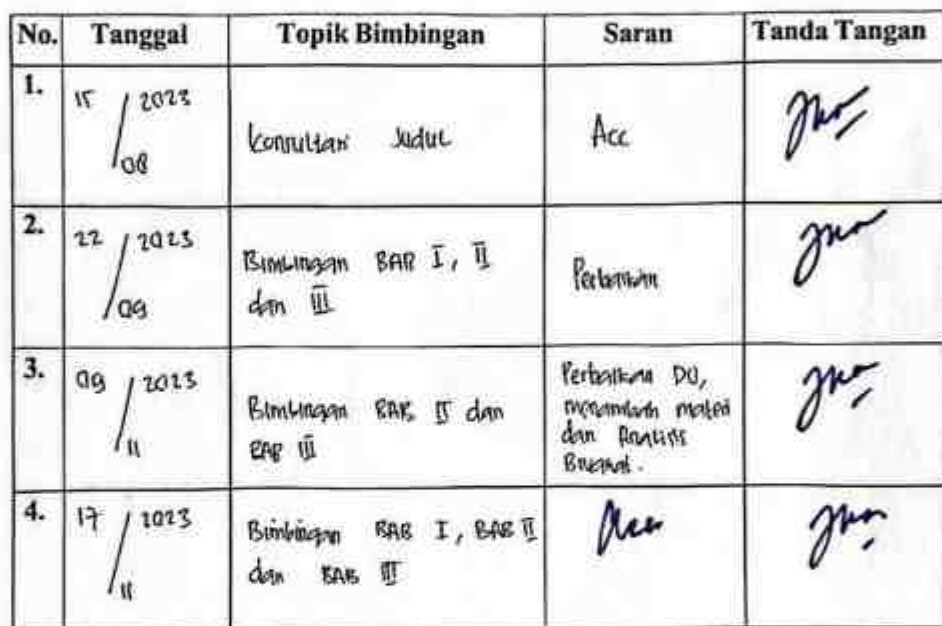 No. Tanggal Topik Bimbingan Saran Tanda Tangan
1. 15 / 08 2023 Konsultasi Judul Acc
2. 22 / 09 2023 Bimbingan BAB I, II
dan III Perbaikan
3. 09 / 11 2023 Bimbingan BAB II dan
BAB III Perbaikan DO,
menambah materi
dan Analisis
Bivariat.
4. 17 / 11 2023 Bimbingan BAB I, BAB II
dan BAB III Acc